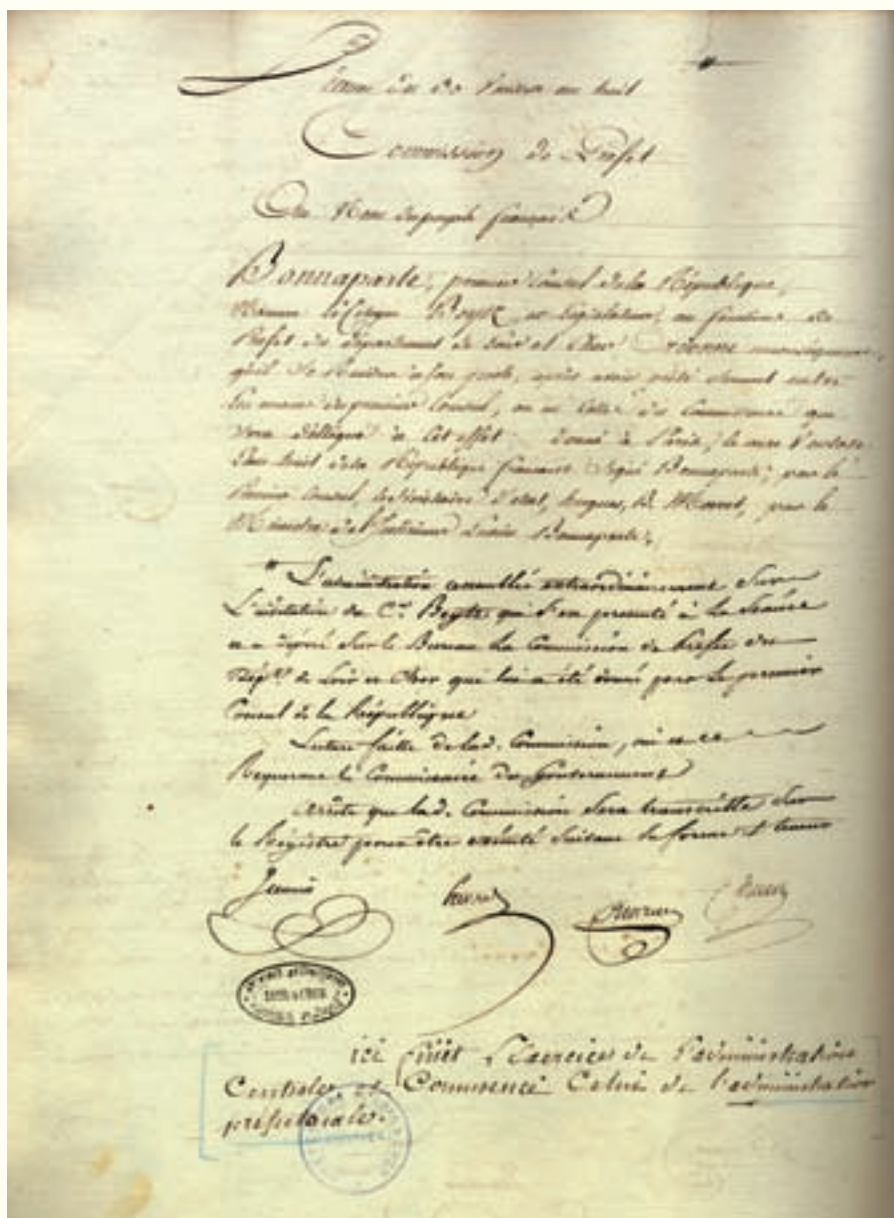 Séance du 30 Ventose an huit
Commission de Préfet
Au Nom du peuple français
Bonnaparte, premier Consul de la République,
Nomme le Citoyen ex législateur, aux fonctions de
Préfet du département de Loir et Cher ordonne en conséquence
qu'il se rendra à son poste, après avoir prêté serment entre
les mains du premier Consul, ou en celles du Commissaire qui
sera délégué à cet effet. Donné à Paris, le onze Ventose
L'an huit de la République française signé Bonnaparte, par le
Premier Consul, le Secrétaire d'état, hugues, B. Maret, par le
Ministre de l'Intérieur Lucien Bonnaparte.
L'administration assemblée extraordinairement sur
L'invitation du Cen. qui s'en presenté à la Séance
et a déposé sur le Bureau La Commission de Préfet du
Dépt. de Loir et Cher qui lui a été donné par le premier
Consul de la République
Lecture faitte de lad. Commission, oui et ce
Requerant le Commissaire du Gouvernement
Arrête que lad. Commission Sera transcritte Sur
le Registre pour être exécuté Suivant Sa forme et teneur
LOIR & CHER
ici finit l'Exercice de l'administration
Centrale et Commence Celui de l'administration
préfectorale.